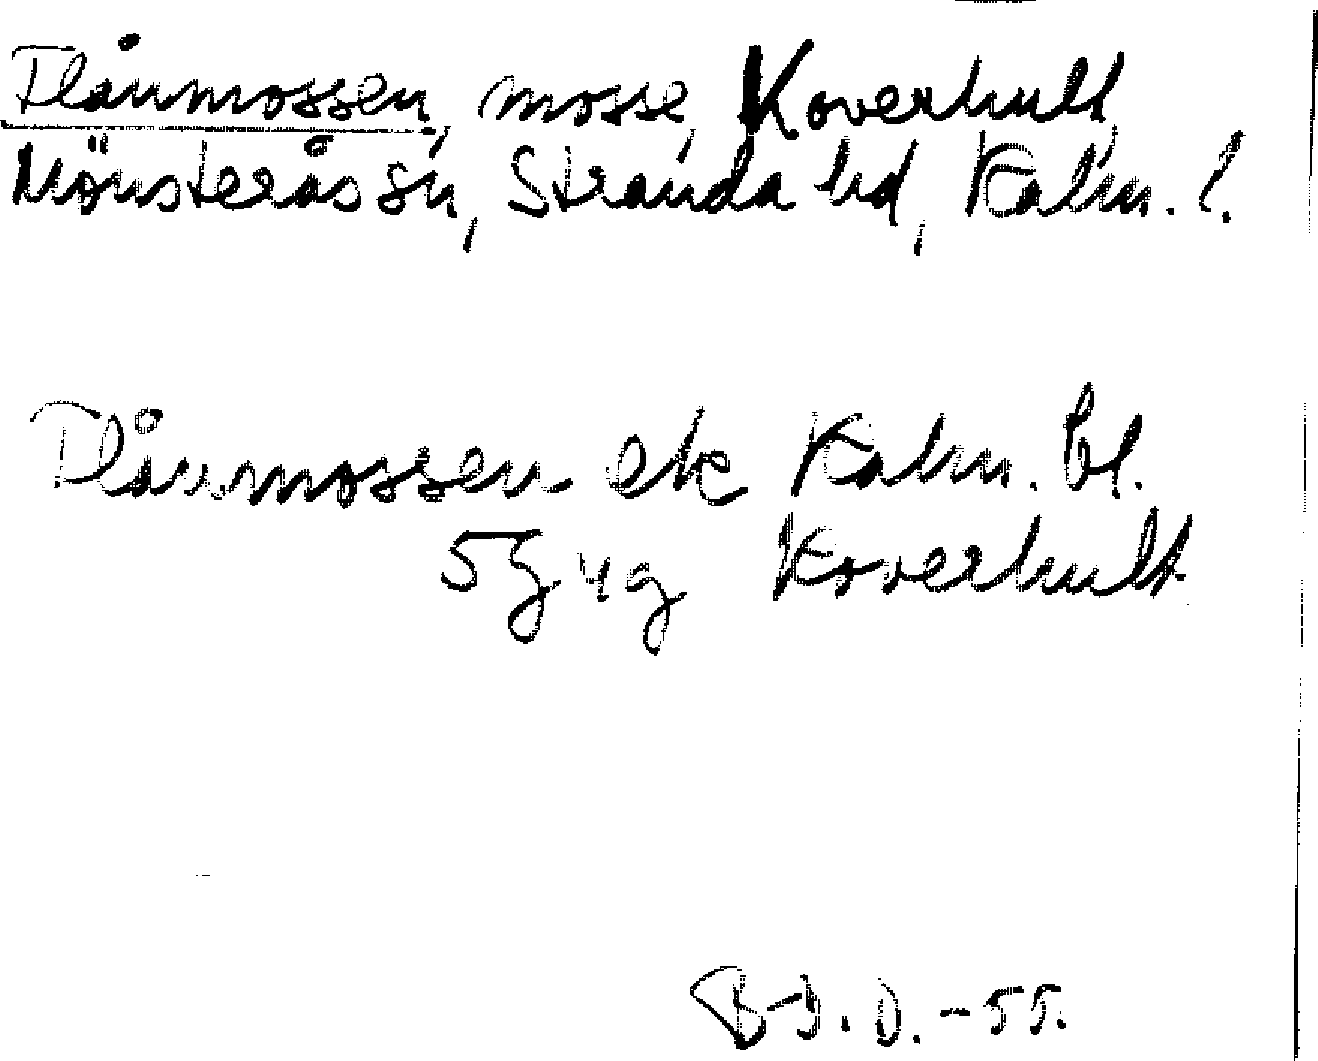 Flånmossen, mosse, Koverhult,
Mönsterås sn, Stranda hd, Kalm. l.
Flånmossen ek Kalm. bl.
5g 4g Koverhult
B-J.O.-55.